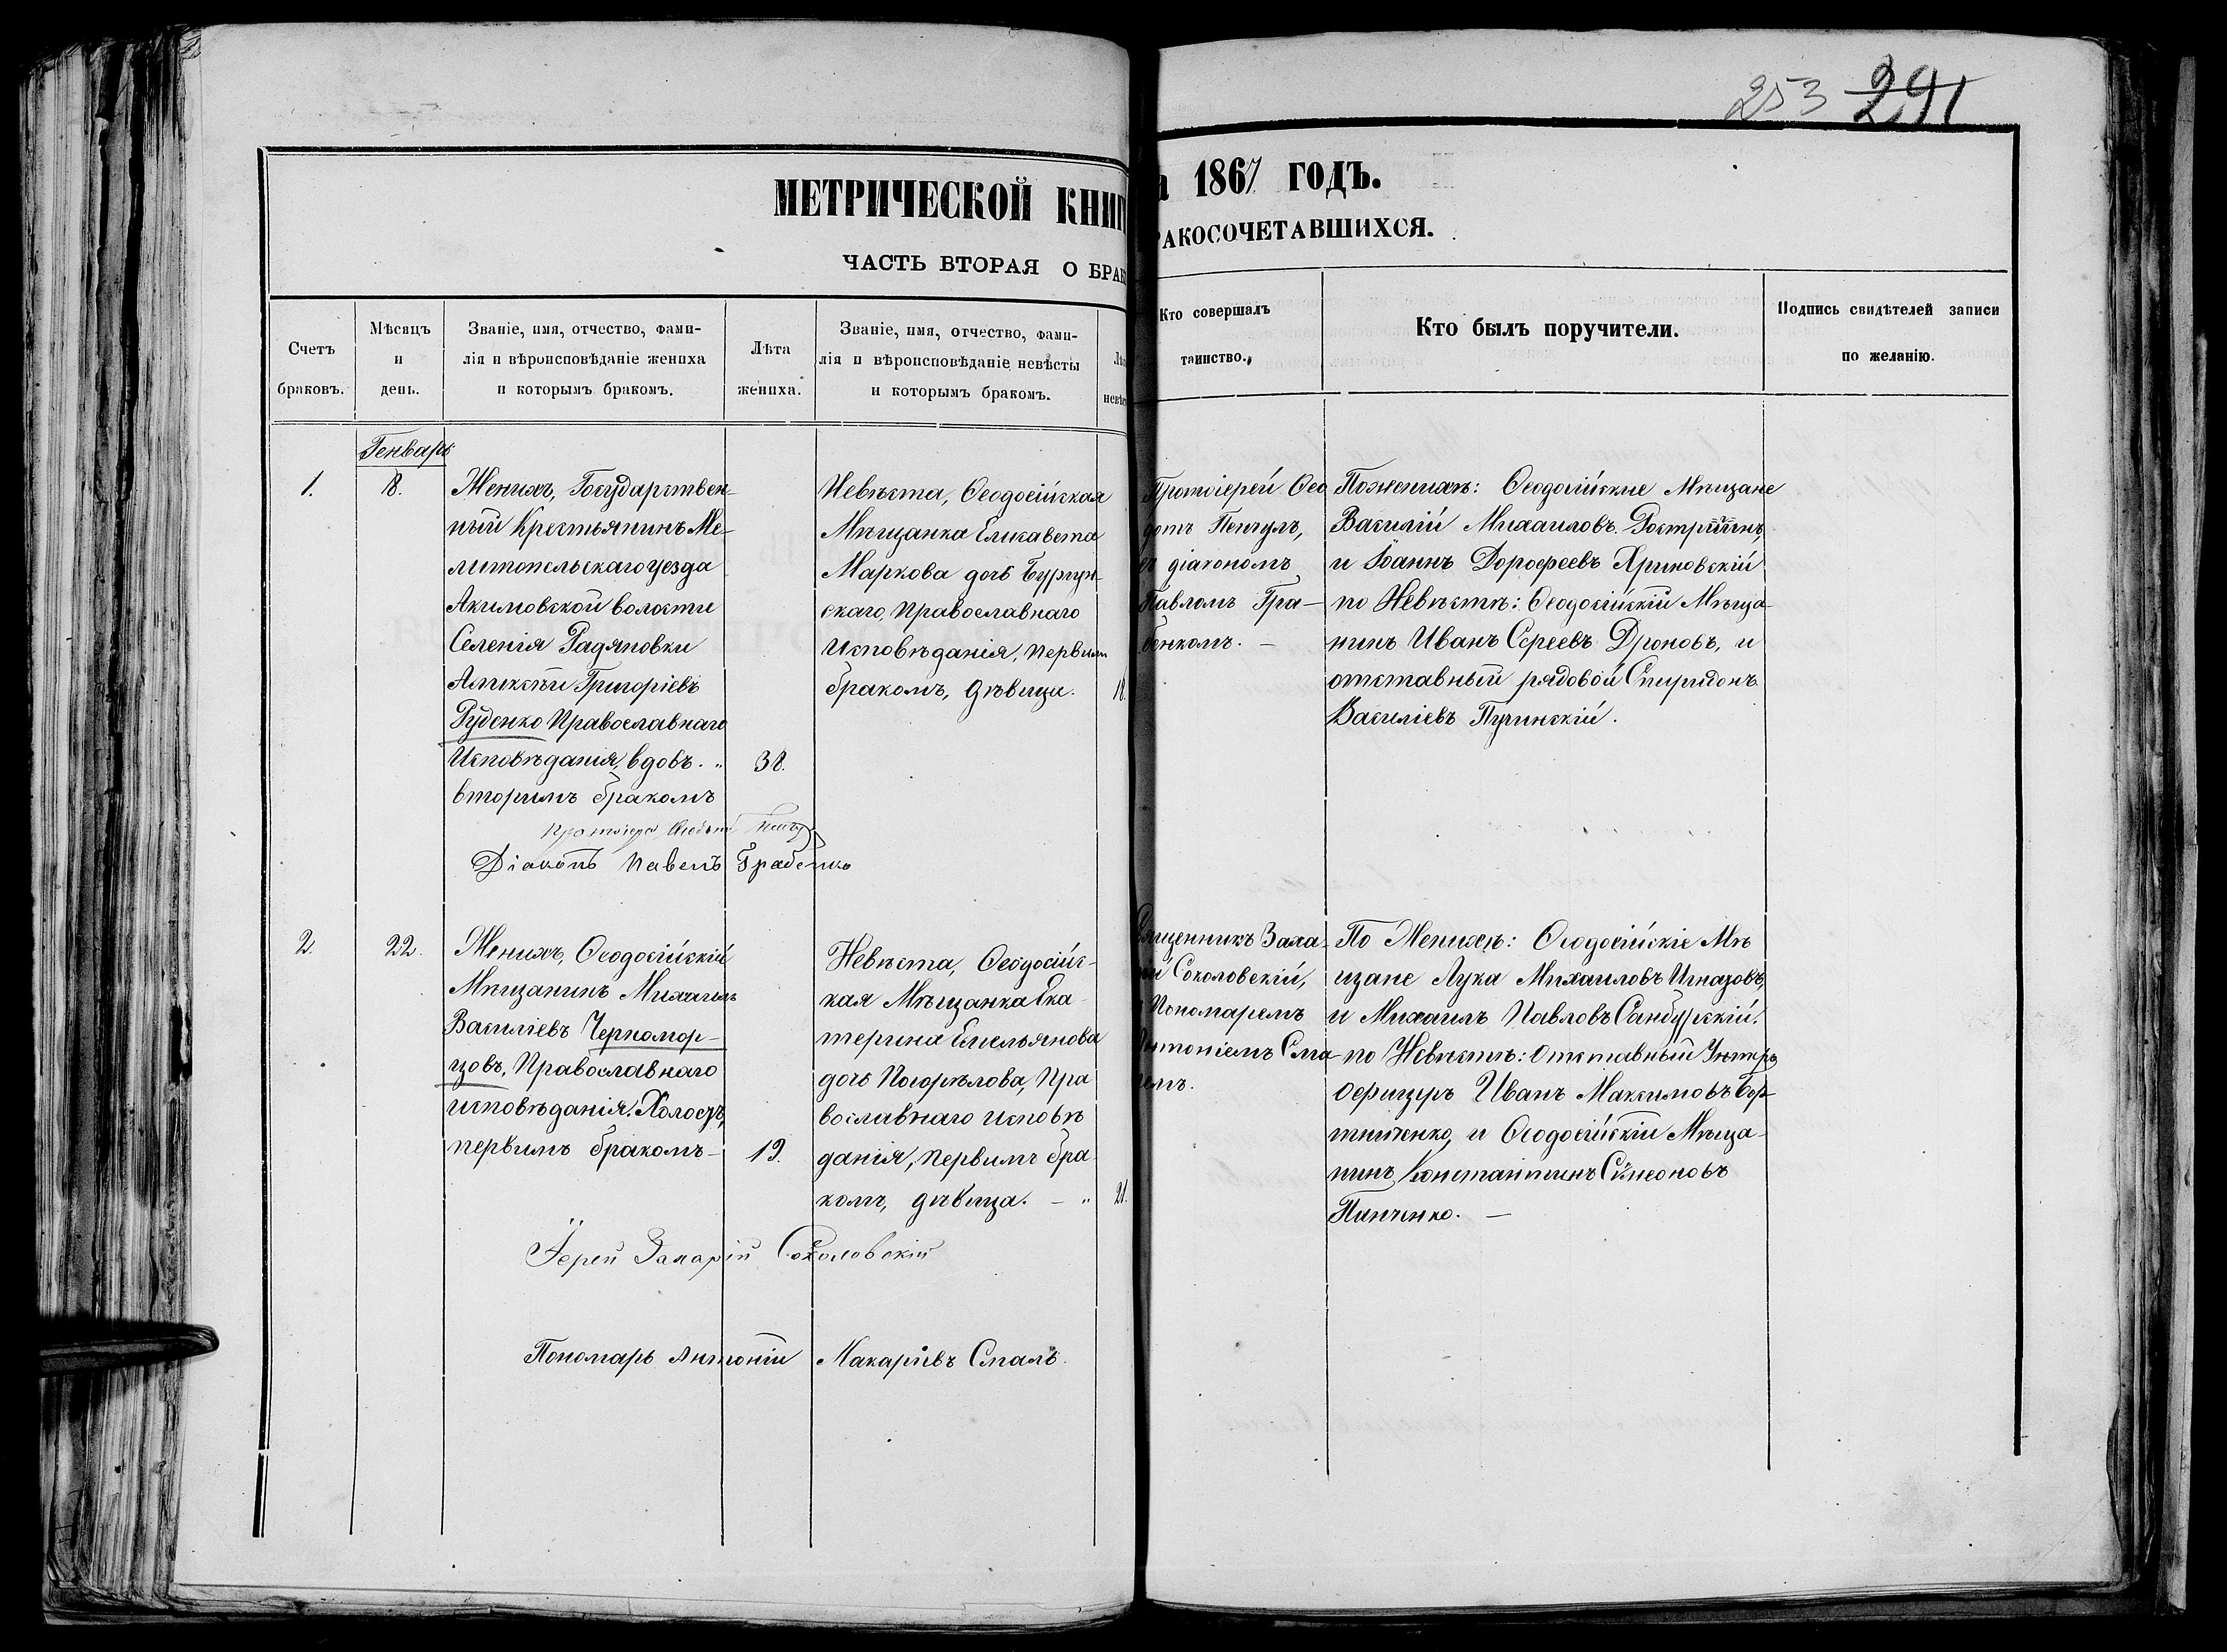 253 291
МЕТРИЧЕСКОЙ КНИГ
а 1867 ГОДЪ.
ЧАСТЬ ВТОРАЯ О БРАК
РАКОСОЧЕТАВШИХСЯ.
Счетъ
браковъ.
Мѣсяцъ
и
день.
Званіе, имя, отчество, фами-
лія и вѣроисповѣданіе жениха
и которымъ бракомъ.
Лѣта
жениха.
Званіе, имя, отчество, фами-
лія и вѣроисповѣданіе невѣсты
и которымъ бракомъ.
Лѣ
невѣс
Кто совершалъ
таинство.
Кто былъ поручители.
Подпись свидѣтелей записи
по желанію.
Генварь
1.
18.
Женихъ, Государствен-
ный Крестьянинъ Ме-
литопельскаго уезда
Акимовской волости
Селенія Радяновки
Алексѣй Григоріевъ
Руденко Православнаго
Исповѣданія, вдовъ. „
вторимъ бракомъ
38.
Невѣста, Ѳеодосійская
Мѣщанка Елисавета
Маркова дочь Бургун-
скаго, Православнаго
Исповѣданія, первим
бракомъ, дѣвица.
18.
Протоіерей Ѳео
дотъ Пенгулъ,
съ діакономъ
Павломъ Гра-
бенкомъ. —
Пожениxѣ: Ѳеодосійские Мѣщане
Василій Михаиловъ
и Іоаннъ Дорофеевъ Хриновскій
по Невѣстѣ: Ѳеодосійскій Мѣща-
нинъ Иванъ Сергеевъ Дроновъ, и
отставный рядовой Спиридонъ
Василіевъ Пучинскій.
Протоіерей
Діаконъ Павелъ Грабенко
2.
22.
Женихъ, Ѳеодосійскій
Мѣщанинъ Михаилъ
Василіевъ Черномор-
цовъ, Православнаго
исповѣданія. Холостъ,
первимъ бракомъ-
19.
Невѣста, Ѳеодосійс-
кая Мѣщанка Ека-
терина Емельянова
дочь Погорѣлова, Пра
вославнаго исповѣ
данія, первимъ бра
комъ, дѣвица. — „
21.
Священникъ Заха-
рій Соколовскій,
съ Пономаремъ
Антоніемъ Сма-
лемъ.
По Женихѣ: Ѳеодосійскіе Мѣ
щане Лука Михаиловъ Игнатовъ,
и Михаилъ Павловъ Санбурскій.
по Невѣстѣ: Отставный Унтеръ
Офицеръ Иванъ Максимовъ
и Ѳеодосійскій Мѣща-
нинъ Константинъ Симеоновъ
Панченко. —
Іерей Захарій Соколовскій
Пономарь Антоній Макаріевъ Смаль.